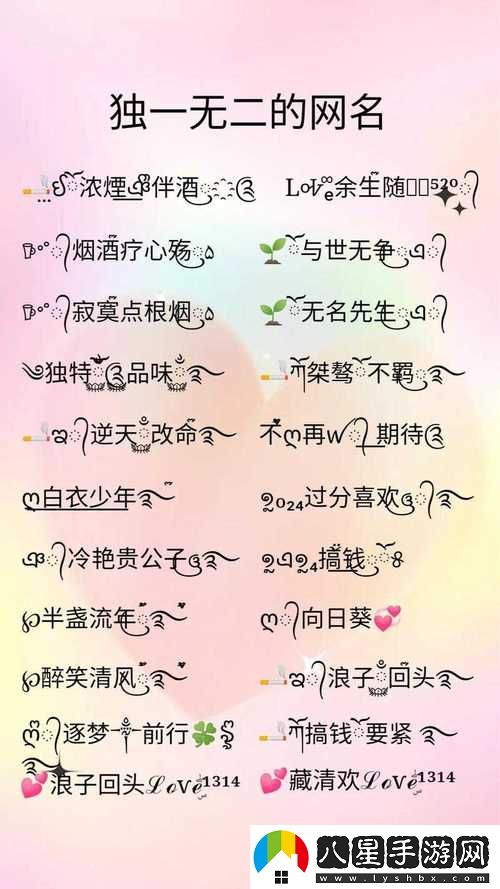 独一无二的网名
浓煙伴酒 Love余生随⁵²⁰
烟酒疗心殇 与世无争
寂寞点根烟 无名先生
独特品味 桀骜不羁
逆天改命 不ღ再w期待
ღ白衣少年 ₂₀₂₄过分喜欢
冷艳贵公子 搞钱
℘半盏流年 ღ向日葵💕
℘醉笑清风 浪子回头
逐梦༒前行🍀 搞钱要紧
💕浪子回头ℒℴѵℯ¹³¹⁴ 💕藏清欢ℒℴѵℯ¹³¹⁴
八星手游网
www.lyshbx.com